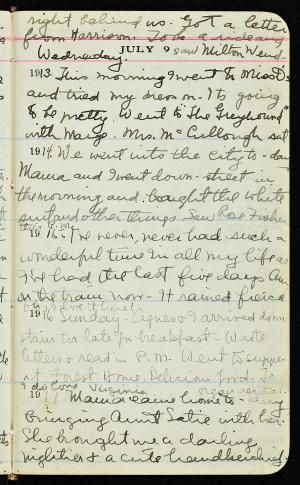 right behind us. Got a letter
from Harrison. Took a ride and
JULY 9 saw Milton Wend-
Wednesday.
1913. This morning I went to Miss D's
and tried my dress on. Its going
to be pretty. Went to "The Greyhound"
with Marge. Mrs. McCullough sat
1914. We went into the city to-day
Mama and I went down-street in
the morning and bought the white
suit and other things. Saw Rose Fisher
1915. I've never, never had such a
wonderful time in all my life as
I've had the last five days. Am
on the train now. It rained fierce
1916 Sunday - Agnes & I arrived down
stairs too late for breakfast - Wrote
letters & read in P.M. Went to supper
at Forest Home. Delicious food. To
I do love Virginia
1917 Mama came home to-day
Bringing Aunt Satie with her.
She brought me a darling
nightie & a cute handkerchief.